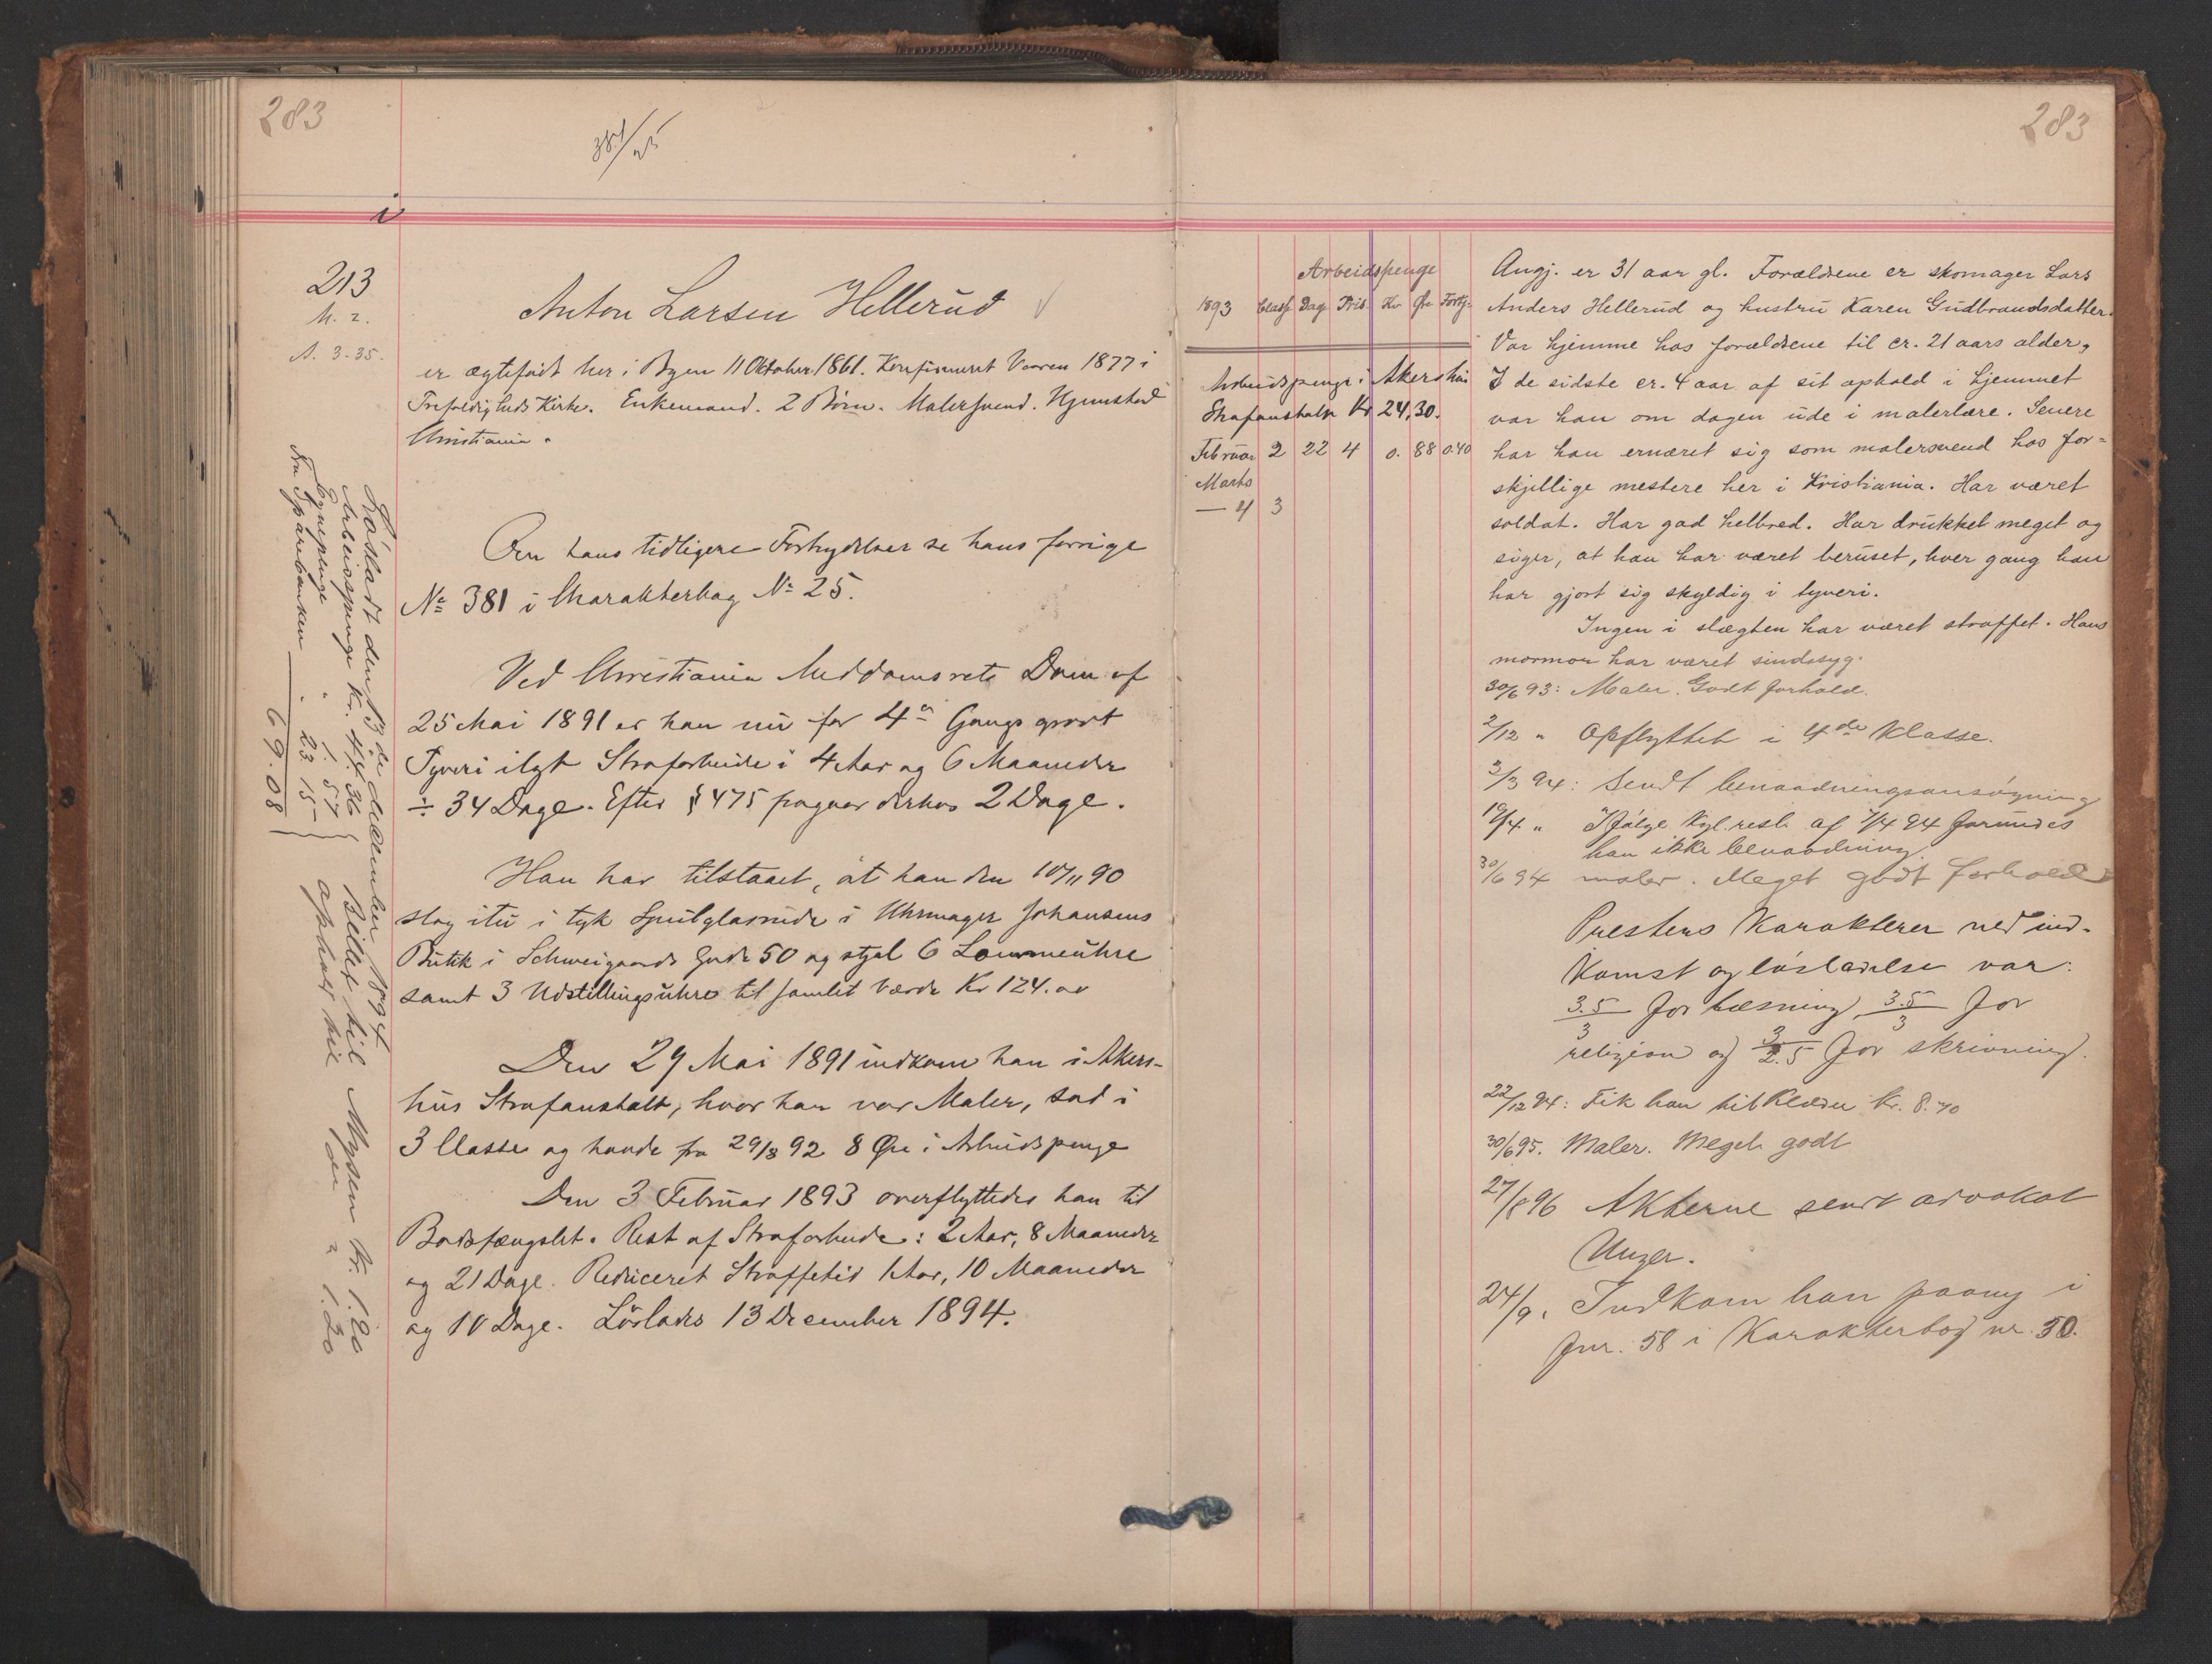 283
381/25
i
213
M. 2.
A. 3.35.
Anton Larsen Hellerud
er ægtefødt her i Byen 11 Oktober 1861. Konfirmeret Vaaren 1877 i
Trefoldigheds Kirke. Enkemand. 2 Børn. Malersvend. Hjemsted
Christiania.
Om hans tidligere Forbrydelser se hans forrige
№ 381 i Charakterbog № 25.
Ved Christiania Meddomsrets Dom af
25 Mai 1891 er han nu for 4de Gangs grovt
Tyveri ilagt Strafarbeide i 4 Aar og 6 Maaneder
÷ 34 Dage. Efter § 475 fragaar derhos 2 Dage.
Han har tilstaaet, at han den 10/11 90
slog itu i tyk Speilglasrude i Uhrmager Johansens
Butik i Schweigaards Gade 50 og stjal 6 Lommeuhre
samt 3 Udstillingsuhre til samlet Værdi Kr 124.00
Den 29 Mai 1891 indkom han i Akers-
hus Strafanstalt, hvor han var Maler, sad i
3 Classe og havde fra 29/8 92 8 Øre i Arbeidspenge
Den 3 Februar 1893 overflyttedes han til
Bodsfængslet. Rest af Strafarbeide: 2 Aar, 8 Maaneder
og 21 Dage. Reduceret Straffetid 1 Aar, 10 Maaneder
og 10 Dage. Løslades 13 December 1894.
Løsladt den 13de december 1894
Arbeidspenge Kr. 44.36
Egnepenge " 1.57
Fra Sparebanken " 23.15
69.08
Billet til Mysen Kr. 1.80
ophold til do " 1.20
283
Arbeidspenge
1893 Class Dag Pris Kr Øre Fortj.
Arbeidspenge i Akershus
Strafanstalt Kr 24,30.
Februar 2 22 4 0. 88 0.40
Marts
— 4 3
Angj. er 31 aar gl. Forældrene er skomager Lars
Anders Hellerud og hustru Karen Gudbrandsdatter.
Var hjemme hos forældrene til cr. 21 aars alder,
I de sidste cr. 4 aar af sit ophold i hjemmet
var han om dagen ude i malerlære. Senere
har han ernæret sig som malersvend hos for=
skjellige mestere her i Kristiania. Har været
soldat. Har god helbred. Har drukket meget og
siger, at han har været beruset, hver gang han
har gjort sig skyldig i tyveri.
Ingen i slægten har været straffet. Hans
mormor har været sindssyg.
30/6 93: Maler. Godt forhold.
2/12 " Opflyttet i 4de Klasse.
3/3 94: Sendt benaadningsansøgning
19/4 " Ifølge Kgl. resl. af 7/4 94 forundes
han ikke benaadning.
30/6 94 maler. Meget godt forhold
Prestens Karakterer ved ind-
komst og løsladelse var:
3.5/3 for læsning, 3.5/3 for
religion og 3/2.5 for skrivning.
22/12 94: Fik han til Klæder kr. 8.70
30/6 95. Maler. Meget godt
27/8 96 Akterne sendt advokat
Unger.
24/9. Indkom han paany i
fnr. 58 i Karakterbog nr. 30.